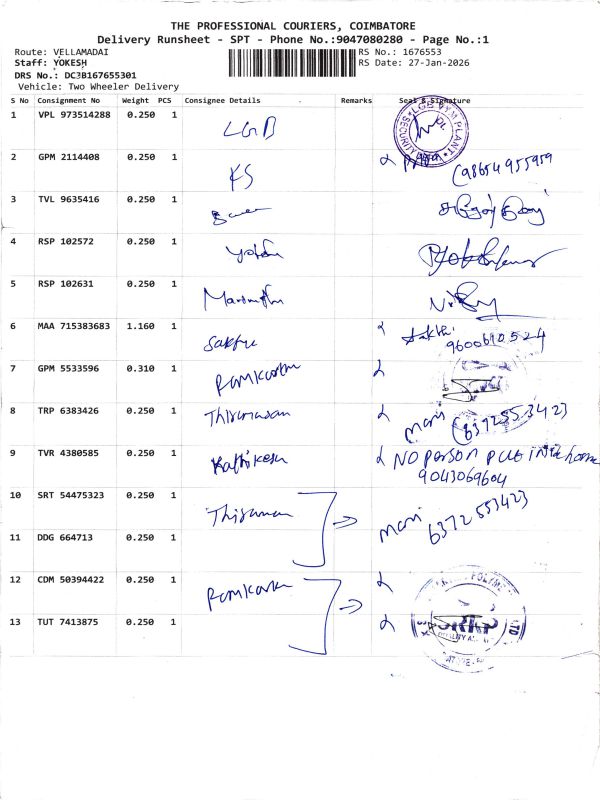 THE PROFESSIONAL COURIERS, COIMBATORE
Delivery Runsheet - SPT - Phone No.:9047080280 - Page No.:1
Route: VELLAMADAI RS No.: 1676553
Staff: YOKESH RS Date: 27-Jan-2026
DRS No.: DC3B167655301
Vehicle: Two Wheeler Delivery
S No Consignment No Weight PCS Consignee Details Remarks Seal & Signature
1 VPL 973514288 0.250 1 LGB
2 GPM 2114408 0.250 1 KS (98654 955959
3 TVL 9635416 0.250 1
4 RSP 102572 0.250 1
5 RSP 102631 0.250 1
6 MAA 715383683 1.160 1 Sakthi
9600610524
7 GPM 5533596 0.310 1 Ramkumar
8 TRP 6383426 0.250 1 mani (6372553423)
9 TVR 4380585 0.250 1 NO person put in the home
9043069604
10 SRT 54475323 0.250 1 mani
6372 553423
11 DDG 664713 0.250 1
12 CDM 50394422 0.250 1
13 TUT 7413875 0.250 1